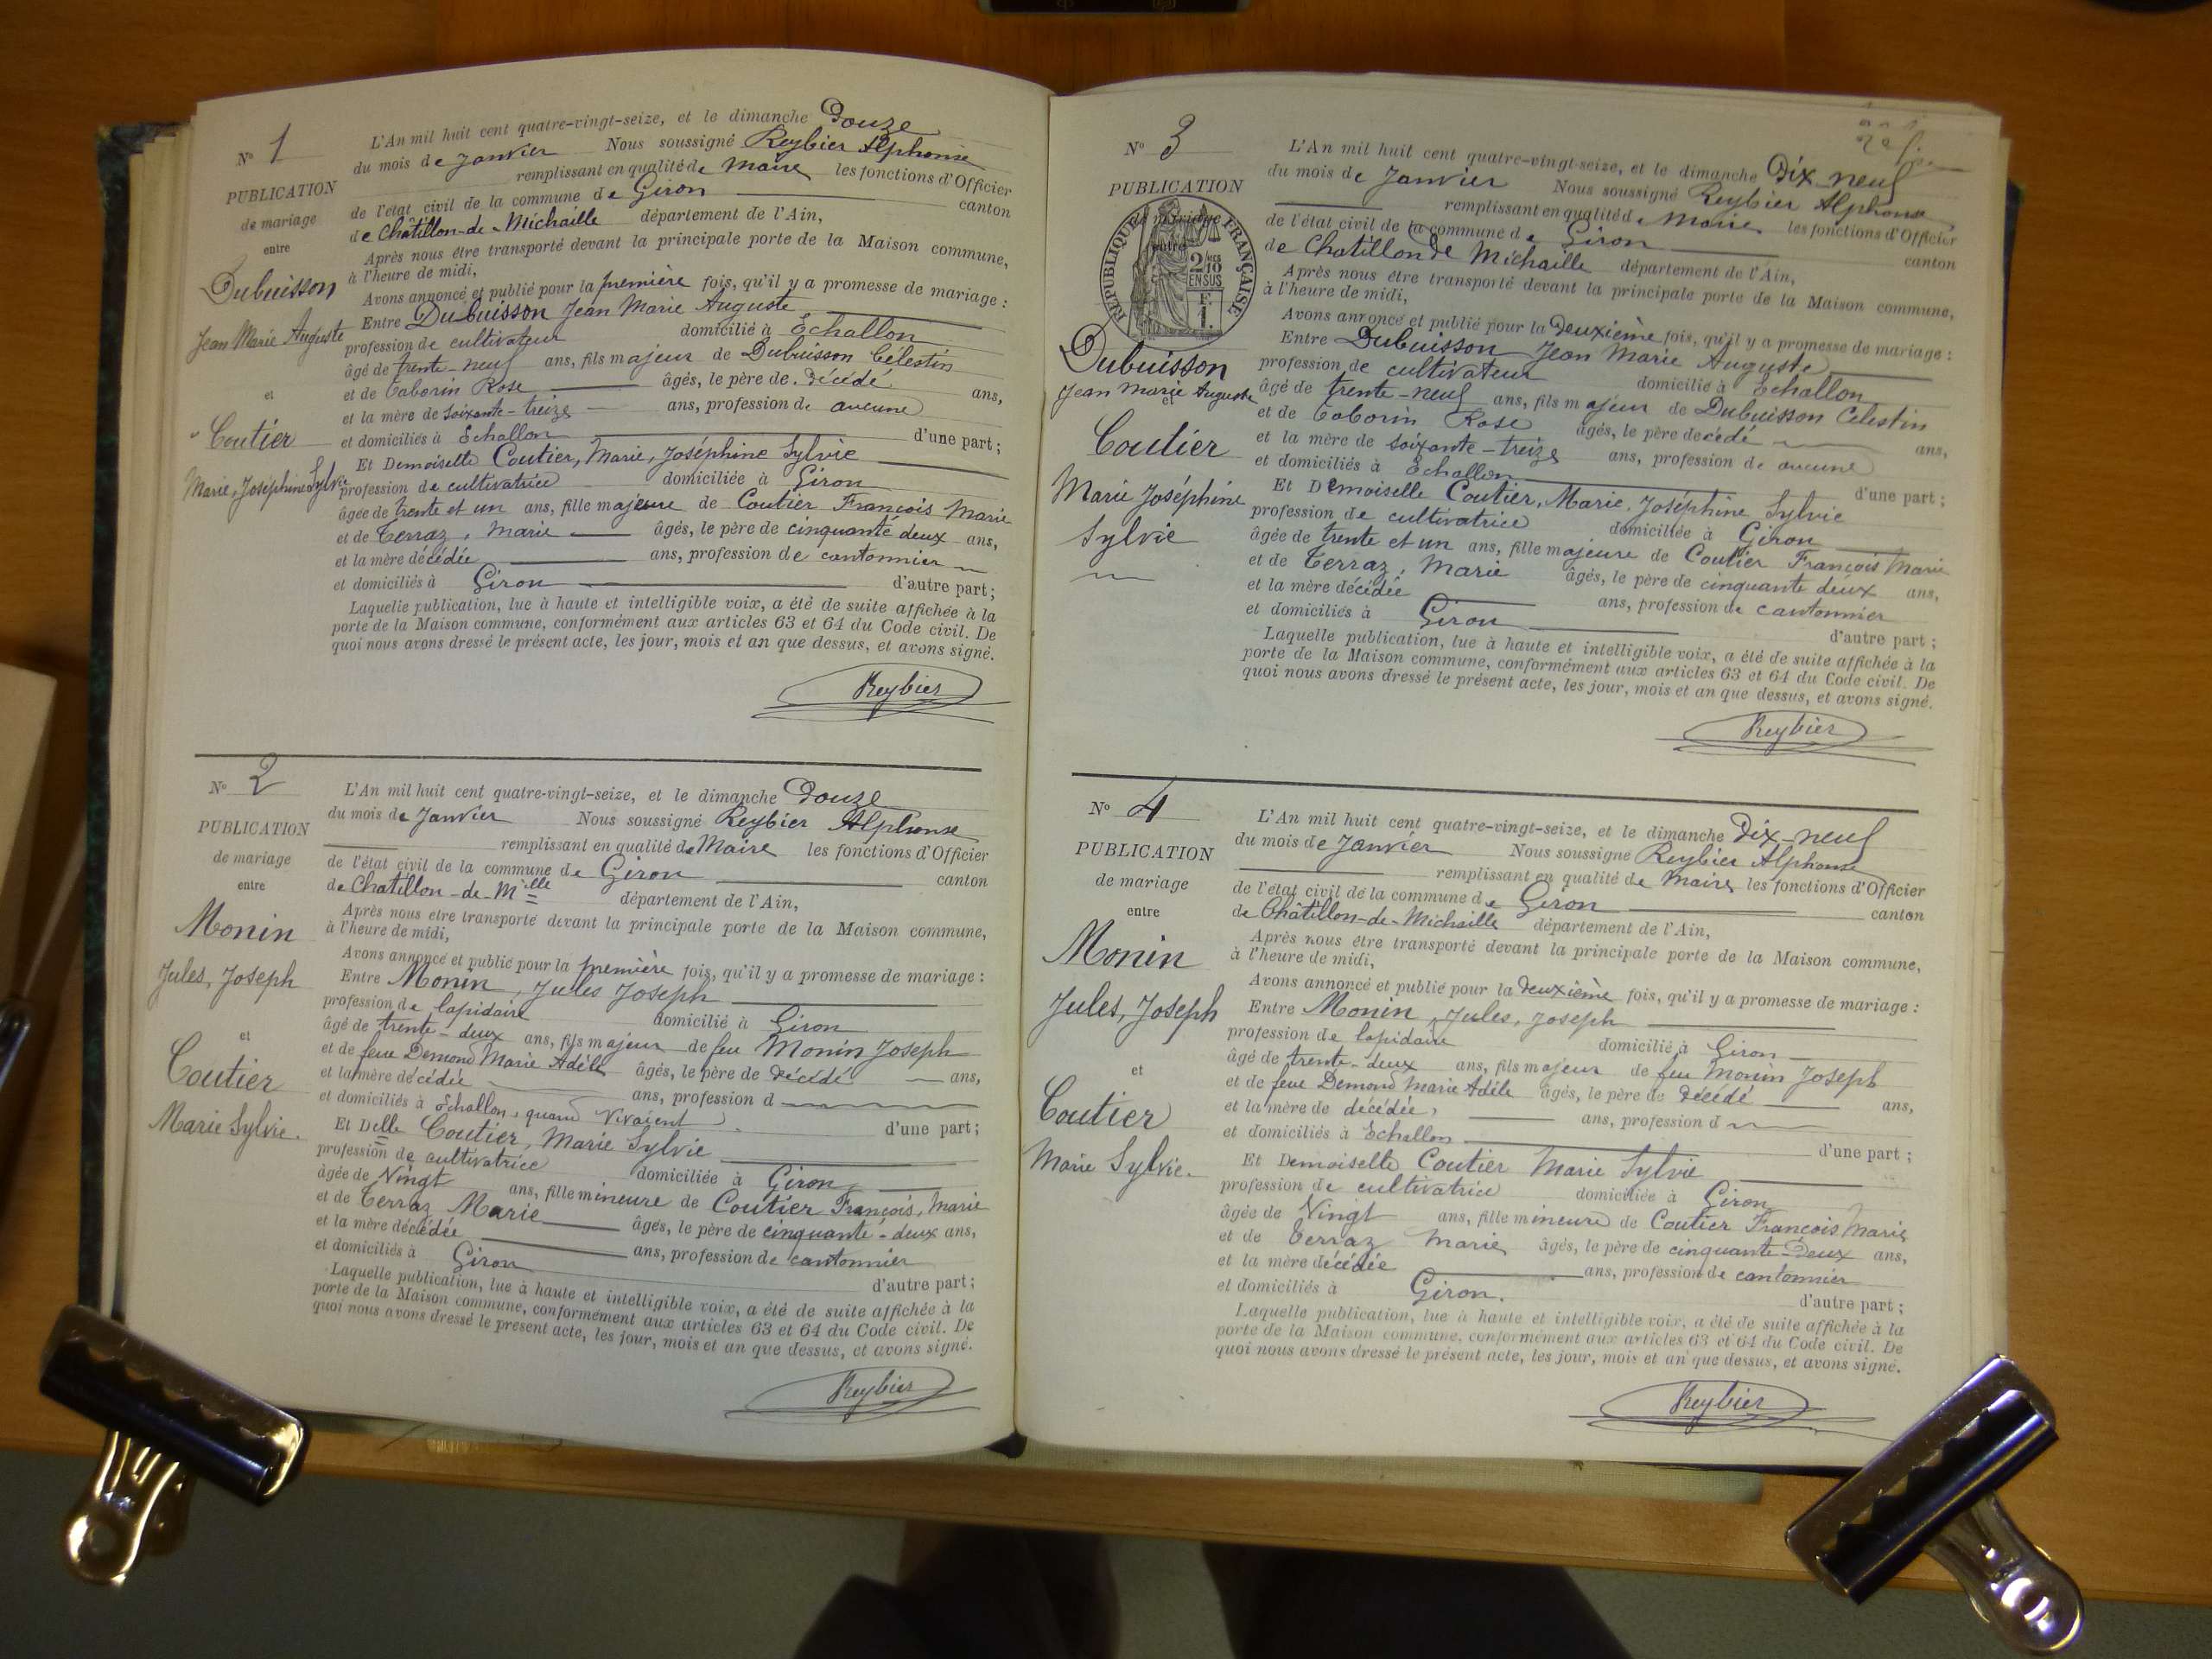 N° 1
PUBLICATION
de mariage
entre
Dubuisson
Jean Marie Auguste
et
Coutier
Marie, Joséphine Sylvie
L'An mil huit cent quatre-vingt-seize, et le dimanche Douze
du mois de Janvier Nous soussigné Reybier Alphonse
remplissant en qualité de Maire les fonctions d'Officier
de l'état civil de la commune de Giron canton
de Châtillon-de-Michaille département de l'Ain,
Après nous être transporté devant la principale porte de la Maison commune,
à l'heure de midi,
Avons annoncé et publié pour la première fois, qu'il y a promesse de mariage :
Entre Dubuisson Jean Marie Auguste
profession de cultivateur domicilié à Echallon
âgé de trente-neuf ans, fils majeur de Dubuisson Célestin
et de Taborin Rose âgés, le père de Décédé ans,
et la mère de soixante-treize ans, profession de aucune
et domiciliés à Echallon d'une part ;
Et Demoiselle Coutier, Marie, Joséphine Sylvie
profession de cultivatrice domiciliée à Giron
âgée de trente et un ans, fille majeure de Coutier François Marie
et de Terraz, Marie âgés, le père de cinquante deux ans,
et la mère décédée ans, profession de cantonnier
et domiciliés à Giron d'autre part ;
Laquelle publication, lue à haute et intelligible voix, a été de suite affichée à la
porte de la Maison commune, conformément aux articles 63 et 64 du Code civil. De
quoi nous avons dressé le présent acte, les jour, mois et an que dessus, et avons signé.
Reybier
N° 2
PUBLICATION
de mariage
entre
Monin
Jules, Joseph
et
Coutier
Marie Sylvie.
L'An mil huit cent quatre-vingt-seize, et le dimanche Douze
du mois de Janvier Nous soussigné Reybier Alphonse
remplissant en qualité de Maire les fonctions d'Officier
de l'état civil de la commune de Giron canton
de Chatillon-de-Mille département de l'Ain,
Après nous être transporté devant la principale porte de la Maison commune,
à l'heure de midi,
Avons annoncé et publié pour la première fois, qu'il y a promesse de mariage :
Entre Monin, Jules Joseph
profession de lapidaire domicilié à Giron
âgé de trente-deux ans, fils majeur de feu Monin Joseph
et de feue Demond Marie Adèle âgés, le père de Décédé ans,
et la mère décédée ans, profession d
et domiciliés à Echallon, quand vivaient d'une part ;
Et Delle Coutier, Marie Sylvie
profession de cultivatrice domiciliée à Giron
âgée de Vingt ans, fille mineure de Coutier François, Marie
et de Terraz Marie âgés, le père de cinquante-deux ans,
et la mère décédée ans, profession de cantonnier
et domiciliés à Giron d'autre part ;
Laquelle publication, lue à haute et intelligible voix, a été de suite affichée à la
porte de la Maison commune, conformément aux articles 63 et 64 du Code civil. De
quoi nous avons dressé le présent acte, les jour, mois et an que dessus, et avons signé.
Reybier
N° 3
PUBLICATION
de mariage
entre
RÉPUBLIQUE FRANÇAISE
2/10
EN SUS
Dubuisson
Jean Marie Auguste
et
Coutier
Marie Joséphine
Sylvie
L'An mil huit cent quatre-vingt-seize, et le dimanche Dix-neuf
du mois de Janvier Nous soussigné Reybier Alphonse
remplissant en qualité de Maire les fonctions d'Officier
de l'état civil de la commune de Giron canton
de Chatillon de Michaille département de l'Ain,
Après nous être transporté devant la principale porte de la Maison commune,
à l'heure de midi,
Avons annoncé et publié pour la Deuxième fois, qu'il y a promesse de mariage :
Entre Dubuisson Jean Marie Auguste
profession de cultivateur domicilié à Echallon
âgé de trente-neuf ans, fils majeur de Dubuisson Célestin
et de Taborin Rose âgés, le père décédé ans,
et la mère de soixante-treize ans, profession de aucune
et domiciliés à Echallon d'une part ;
Et Demoiselle Coutier, Marie, Joséphine Sylvie
profession de cultivatrice domiciliée à Giron
âgée de trente et un ans, fille majeure de Coutier François Marie
et de Terraz, Marie âgés, le père de cinquante deux ans,
et la mère décédée ans, profession de cantonnier
et domiciliés à Giron d'autre part ;
Laquelle publication, lue à haute et intelligible voix, a été de suite affichée à la
porte de la Maison commune, conformément aux articles 63 et 64 du Code civil. De
quoi nous avons dressé le présent acte, les jour, mois et an que dessus, et avons signé.
Reybier
N° 4
PUBLICATION
de mariage
entre
Monin
Jules, Joseph
et
Coutier
Marie Sylvie.
L'An mil huit cent quatre-vingt-seize, et le dimanche Dix-neuf
du mois de Janvier Nous soussigné Reybier Alphonse
remplissant en qualité de Maire les fonctions d'Officier
de l'état civil de la commune de Giron canton
de Châtillon-de-Michaille département de l'Ain,
Après nous être transporté devant la principale porte de la Maison commune,
à l'heure de midi,
Avons annoncé et publié pour la Deuxième fois, qu'il y a promesse de mariage :
Entre Monin, Jules, Joseph
profession de lapidaire domicilié à Giron
âgé de trente-deux ans, fils majeur de feu Monin Joseph
et de feue Demond Marie Adèle âgés, le père de Décédé ans,
et la mère de décédée, ans, profession d
et domiciliés à Echallon d'une part ;
Et Demoiselle Coutier Marie Sylvie
profession de cultivatrice domiciliée à Giron
âgée de Vingt ans, fille mineure de Coutier François Marie
et de Terraz Marie âgés, le père de cinquante-Deux ans,
et la mère décédée ans, profession de cantonnier
et domiciliés à Giron. d'autre part ;
Laquelle publication, lue à haute et intelligible voix, a été de suite affichée à la
porte de la Maison commune, conformément aux articles 63 et 64 du Code civil. De
quoi nous avons dressé le présent acte, les jour, mois et an que dessus, et avons signé.
Reybier